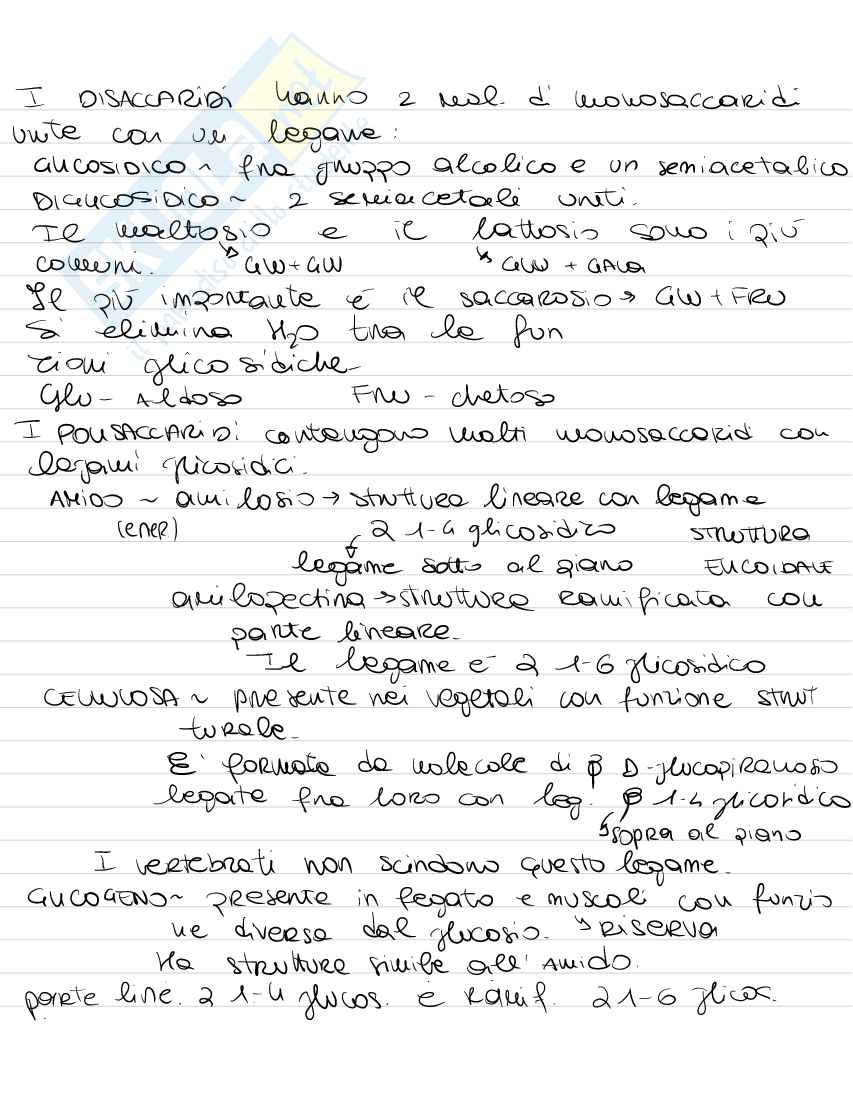 I DISACCARIDI hanno 2 mol. di monosaccaridi
unite con un legame:
GLICOSIDICO ~ fra gruppo alcolico e un semiacetalico
DIGLICOSIDICO ~ 2 semiacetali uniti.
Il maltosio e il lattosio sono i più
comuni. ↘ GLU + GLU ↘ GLU + GALA
Il più importante è il saccarosio → GLU + FRU
Si elimina H2O tra le fun
zioni glicosidiche
Glu - Aldoso Fru - chetoso
I POLISACCARIDI contengono molti monosaccaridi con
legami glicosidici.
AMIDO ~ amilosio → struttura lineare con legame
(ener) α 1-4 glicosidico STRUTTURA
legame sotto al piano ELICOIDALE
amilopectina → struttura ramificata con
parte lineare.
Il legame è α 1-6 glicosidico
CELLULOSA ~ presente nei vegetali con funzione strut
turale.
E' formata da molecole di β D-glucopiranosio
legate fra loro con leg. β 1-4 glicosidico
↘ sopra al piano
I vertebrati non scindono questo legame.
GLICOGENO ~ presente in fegato e muscoli con funzio
ne diversa dal glucosio. ↘ RISERVA
Ha struttura simile all'AMIDO.
parete line. α 1-4 glucos. e ramif. α 1-6 glicos.
SKUOLA.net
il paradiso dello studente